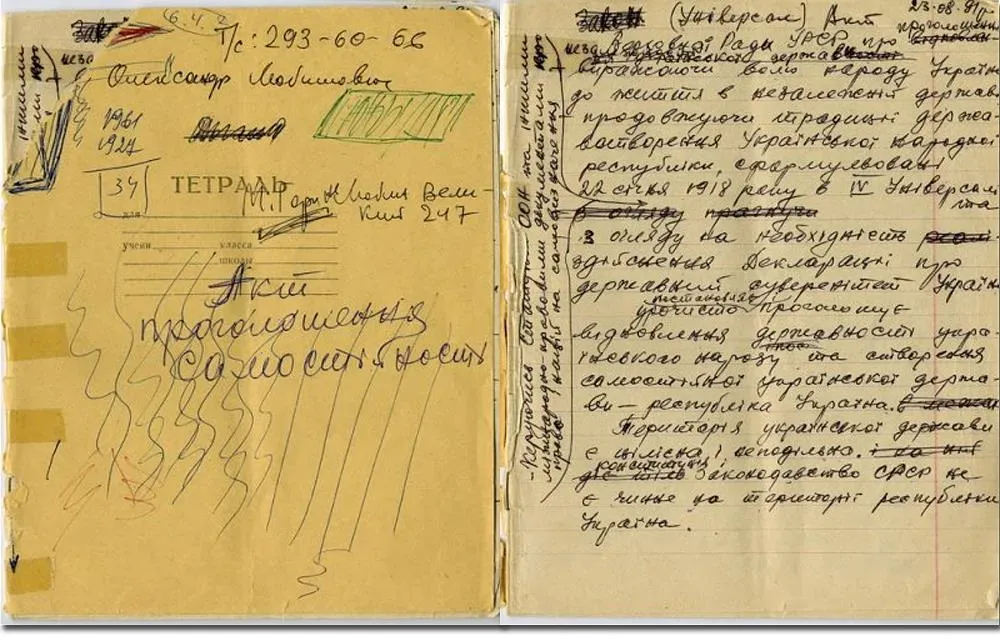 Т/с: 293-60-66
Олександр Любимович
1961
1927
34
ТЕТРАДЬ
М. Вели-
кий 247
для
учени класса
школы
Акт
проголошення
самостійності
23.08.91
Закон (Універсал) Акт
проголошення
Верховної Ради УРСР про
неза української держав
виражаючи волю народу Україн
до життя в незалежній держав
продовжуючи традиції держа-
вотворення Української народної
республіки, сформульовані
22 січня 1918 року в IV Універсалі
та
в огляду
з огляду на необхідність
здійснення Декларації про
державний суверенітет Україн
урочисто проголошує
відновлення державності укра-
їнського народу та створення
самостійної української держа-
ви — республіка Україна.
Територія української держави
є цілісна і неподільна.
конституція і
законодавство СРСР не
є чинне на території республіки
Україна.
-керуючись Статутом ООН та іншими
міжнародно-правовими документами про
право націй на самовизначення